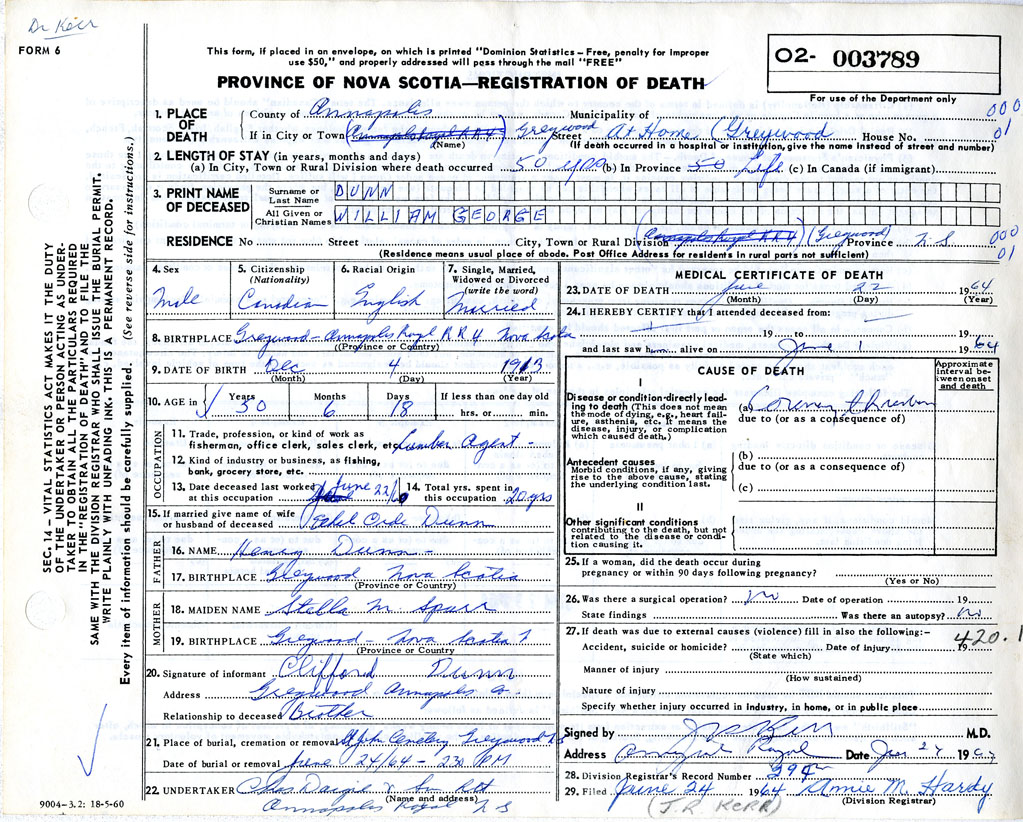 Dr Kerr
FORM 6
This form, if placed in an envelope, on which is printed "Dominion Statistics – Free, penalty for improper
use $50," and properly addressed will pass through the mail "FREE"
PROVINCE OF NOVA SCOTIA—REGISTRATION OF DEATH
O2- 003789
For use of the Department only
1. PLACE OF DEATH
County of Annapolis Municipality of 000
If in City or Town (Annapolis Royal R R 4) Greywood Street At Home (Greywood House No. 01
(Name) (If death occurred in a hospital or institution, give the name instead of street and number)
2. LENGTH OF STAY (in years, months and days)
(a) In City, Town or Rural Division where death occurred 50 yrs (b) In Province 50 Life (c) In Canada (if immigrant)
3. PRINT NAME OF DECEASED
Surname or Last Name DUNN
All Given or Christian Names WILLIAM GEORGE
RESIDENCE No Street City, Town or Rural Division (Annapolis Royal R R 4) (Greywood) Province N.S. 000 01
(Residence means usual place of abode. Post Office Address for residents in rural parts not sufficient)
4. Sex
Male
5. Citizenship (Nationality)
Canadian
6. Racial Origin
English
7. Single, Married, Widowed or Divorced (write the word)
Married
8. BIRTHPLACE Greywood - Annapolis Royal R R 4 Nova Scotia
(Province or Country)
9. DATE OF BIRTH Dec 4 1913
(Month) (Day) (Year)
10. AGE in Years Months Days If less than one day old
50 6 18 hrs. or min.
OCCUPATION
11. Trade, profession, or kind of work as
fisherman, office clerk, sales clerk, etc. Lumber Agent -
12. Kind of industry or business, as fishing,
bank, grocery store, etc.
13. Date deceased last worked at this occupation June 22/6
14. Total yrs. spent in this occupation 20 yrs
15. If married give name of wife
or husband of deceased Dunn
FATHER
16. NAME Henry Dunn -
17. BIRTHPLACE Greywood Nova Scotia
(Province or Country)
MOTHER
18. MAIDEN NAME Stella M. Spurr
19. BIRTHPLACE Greywood - Nova Scotia
(Province or Country
20. Signature of informant Clifford Dunn
Address Greywood Annapolis Co
Relationship to deceased Brother
21. Place of burial, cremation or removal Cemetery Greywood NS
Date of burial or removal June 24/64 - 230 PM
22. UNDERTAKER Chas & Son Ltd
(Name and address)
Annapolis Royal N S
9004–3.2: 18-5-60
SEC. 14 – VITAL STATISTICS ACT MAKES IT THE DUTY
OF THE UNDERTAKER OR PERSON ACTING AS UNDER-
TAKER TO OBTAIN ALL THE PARTICULARS REQUIRED
IN THE "REGISTRATION OF DEATH" AND TO FILE THE
SAME WITH THE DIVISION REGISTRAR WHO SHALL ISSUE THE BURIAL PERMIT.
WRITE PLAINLY WITH UNFADING INK. THIS IS A PERMANENT RECORD.
Every item of information should be carefully supplied. (See reverse side for instructions.)
MEDICAL CERTIFICATE OF DEATH
23. DATE OF DEATH June 22 1964
(Month) (Day) (Year)
24. I HEREBY CERTIFY that I attended deceased from:
19 to 19
and last saw h alive on June 1 1964
CAUSE OF DEATH
Approximate interval between onset and death
I
Disease or condition directly lead-
ing to death (This does not mean
the mode of dying, e.g., heart fail-
ure, asthenia, etc. It means the
disease, injury, or complication
which caused death.)
(a) Coronary thrombosis
due to (or as a consequence of)
Antecedent causes
Morbid conditions, if any, giving
rise to the above cause, stating
the underlying condition last.
(b)
due to (or as a consequence of)
(c)
II
Other significant conditions
contributing to the death, but not
related to the disease or condi-
tion causing it.
25. If a woman, did the death occur during
pregnancy or within 90 days following pregnancy?
(Yes or No)
26. Was there a surgical operation? no Date of operation 19
State findings Was there an autopsy? no
27. If death was due to external causes (violence) fill in also the following:– 420.1
Accident, suicide or homicide? Date of injury 19
(State which)
Manner of injury
(How sustained)
Nature of injury
Specify whether injury occurred in industry, in home, or in public place
Signed by J R Kerr M.D.
Address Annapolis Royal Date June 24 196
28. Division Registrar's Record Number 394
29. Filed June 24 1964 Annie M. Hardy
(J.R. KERR) (Division Registrar)